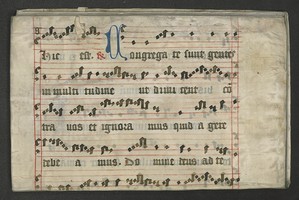 Hic est. Congregate sunt gentes
in multitudine ut dimicent co
tra nos et ignoramus quid agere
debeamus. Domine deus ad te